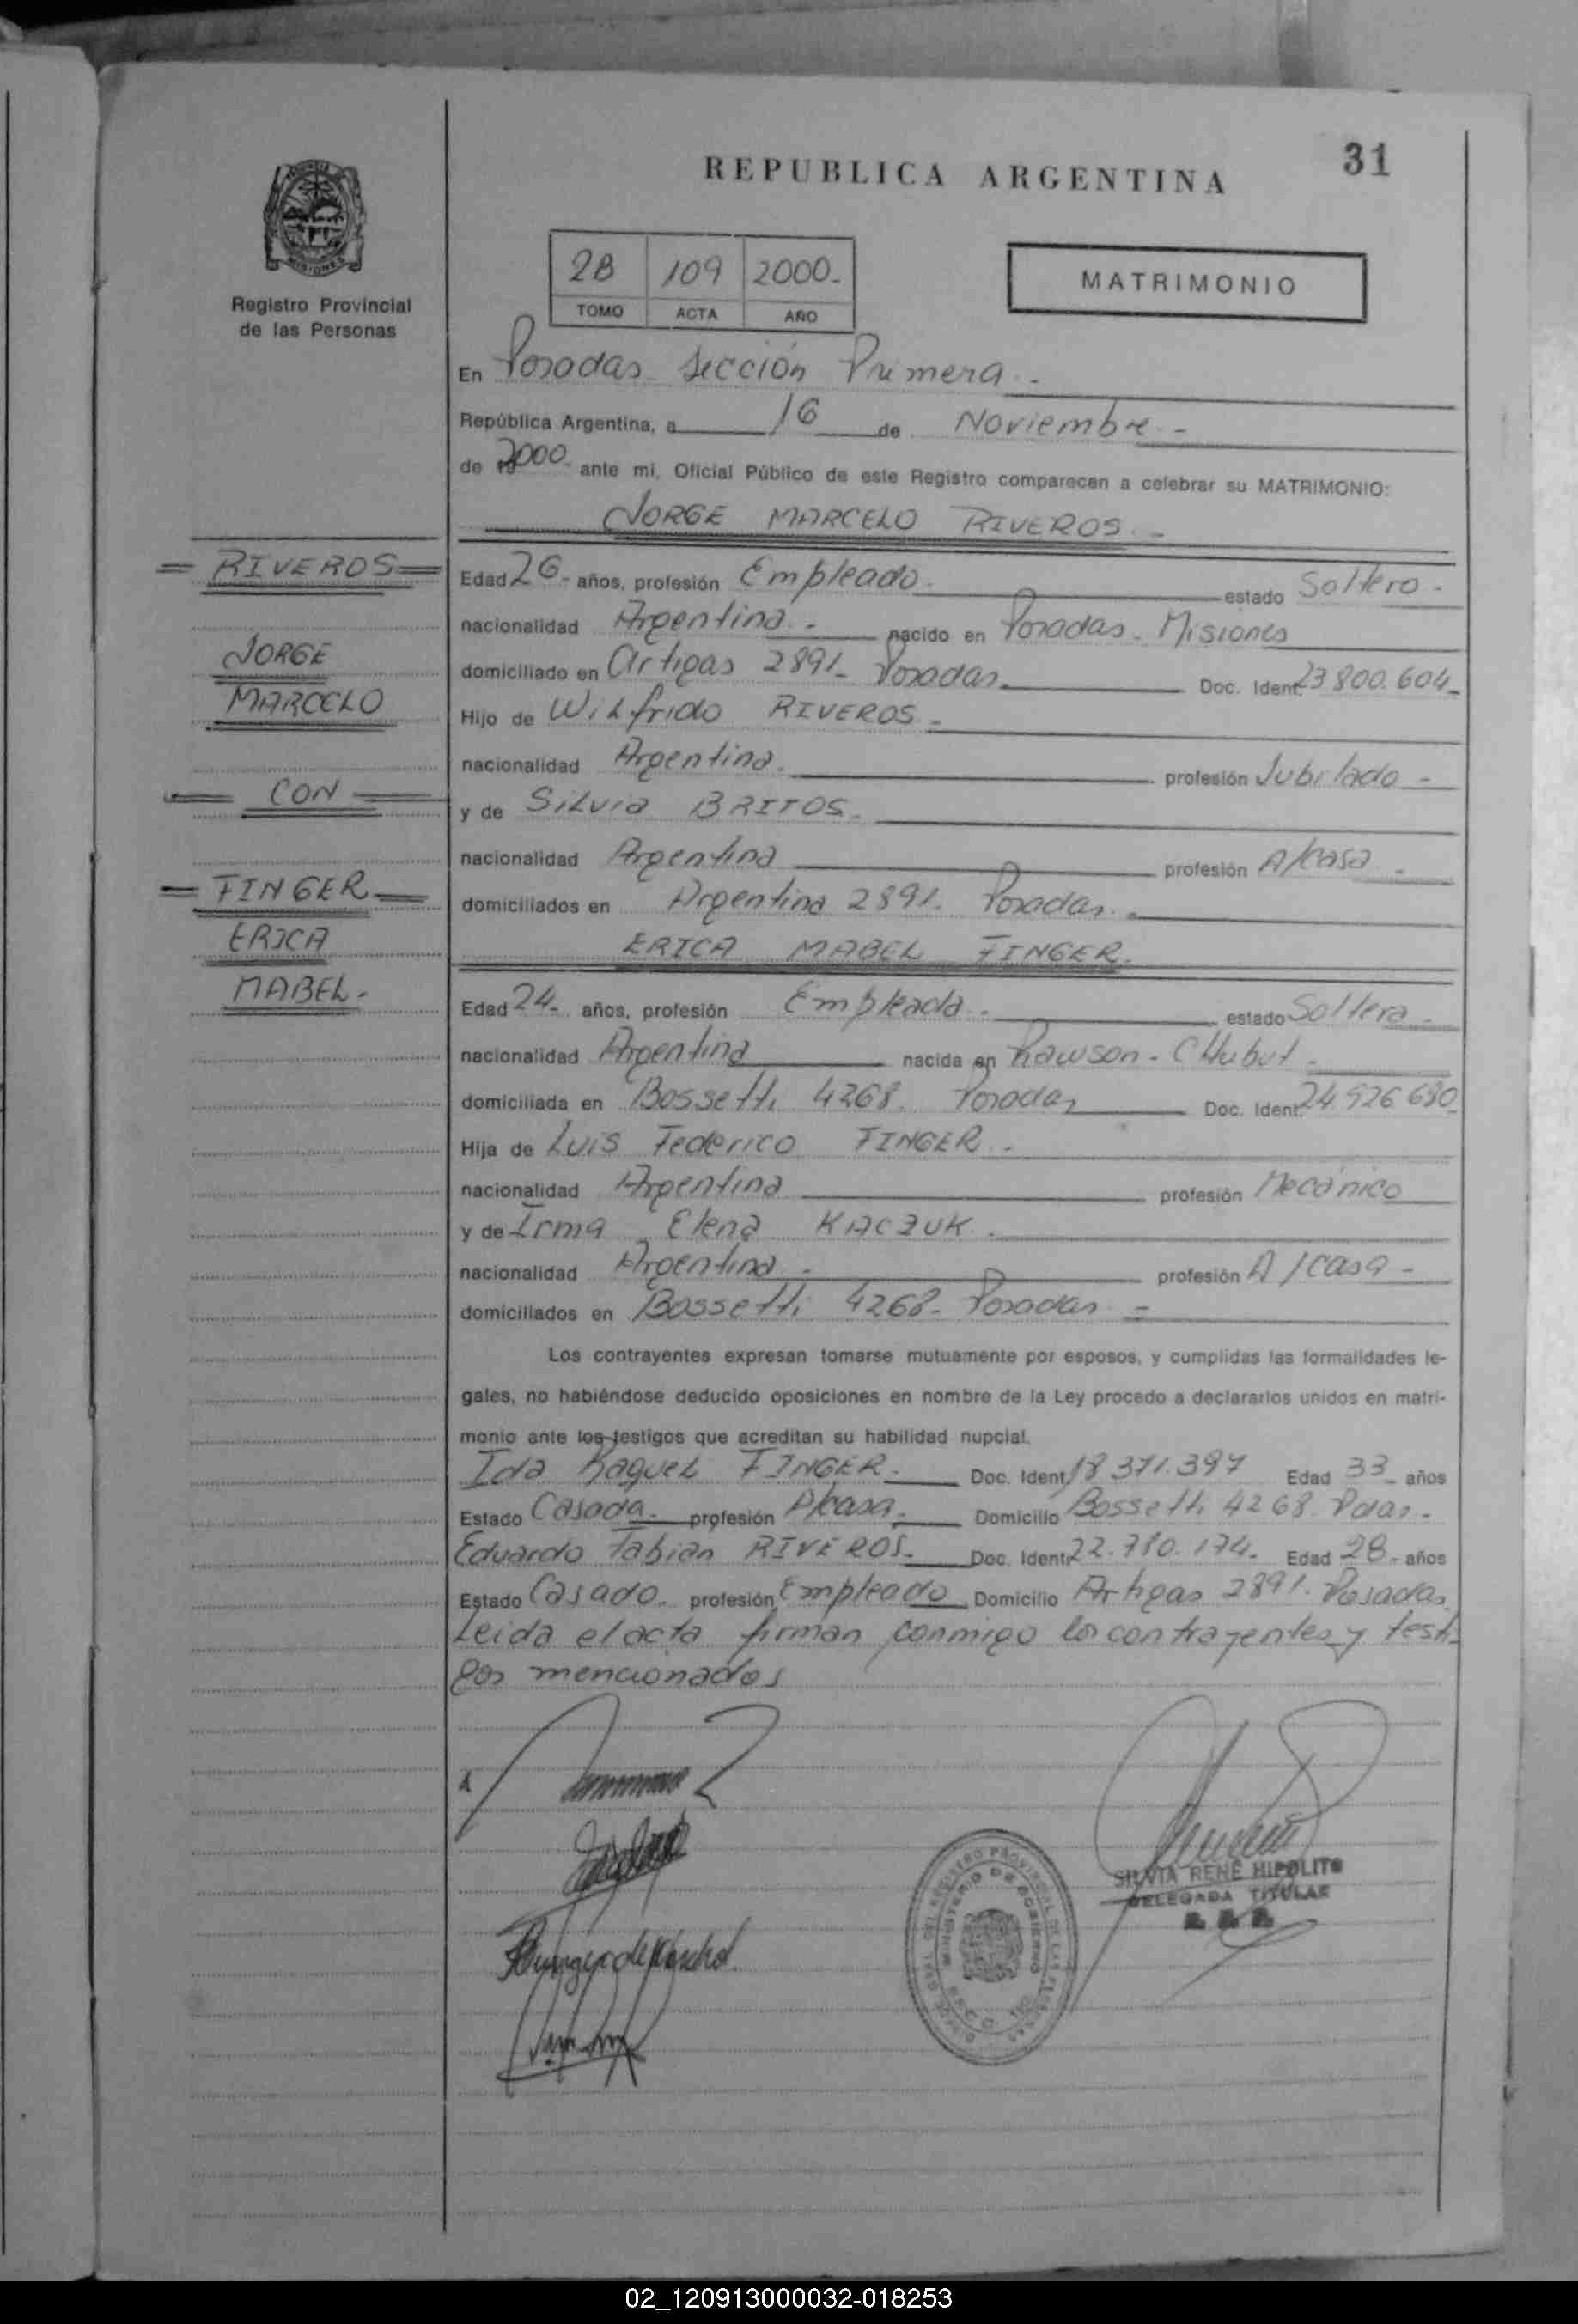 31
REPUBLICA ARGENTINA
MISIONES
Registro Provincial
de las Personas
2B 109 2000.-
TOMO ACTA AÑO
MATRIMONIO
En Posadas Sección Primera.-
República Argentina, a 16 de Noviembre.-
de 2000.- ante mi, Oficial Público de este Registro comparecen a celebrar su MATRIMONIO:
JORGE MARCELO RIVEROS.-
= RIVEROS =
JORGE
MARCELO
= CON =
= FINGER =
ERICA
MABEL.-
Edad 26.- años, profesión Empleado.- estado Soltero.-
nacionalidad Argentina.- nacido en Posadas. Misiones
domiciliado en Artigas 2891. Posadas. Doc. Ident. 23.800.604.-
Hijo de Wilfrido RIVEROS.-
nacionalidad Argentina. profesión Jubilado.-
y de Silvia BRITOS.-
nacionalidad Argentina profesión A/casa.-
domiciliados en Argentina 2891. Posadas.-
ERICA MABEL FINGER.-
Edad 24.- años, profesión Empleada.- estado Soltera.-
nacionalidad Argentina nacida en Rawson - CHubut.-
domiciliada en Bossetti 4268. Posadas Doc. Ident. 24.926.680
Hija de Luis Federico FINGER.-
nacionalidad Argentina profesión Mecánico
y de Irma Elena KACZUK.-
nacionalidad Argentina.- profesión A/casa.-
domiciliados en Bossetti 4268. Posadas.-
Los contrayentes expresan tomarse mutuamente por esposos, y cumplidas las formalidades le-
gales, no habiéndose deducido oposiciones en nombre de la Ley procedo a declararlos unidos en matri-
monio ante los testigos que acreditan su habilidad nupcial.
Ida Raquel FINGER.- Doc. Ident. 18.371.397 Edad 33.- años
Estado Casada.- profesión A/casa.- Domicilio Bossetti 4268. Pdas.-
Eduardo Fabian RIVEROS.- Doc. Ident. 22.780.174.- Edad 28.- años
Estado Casado.- profesión Empleado Domicilio Artigas 2891. Posadas.
Leida el acta firman conmigo los contrayentes y testi-
gos mencionados
SILVIA RENE HIPOLITO
DELEGADA TITULAR
02_120913000032-018253